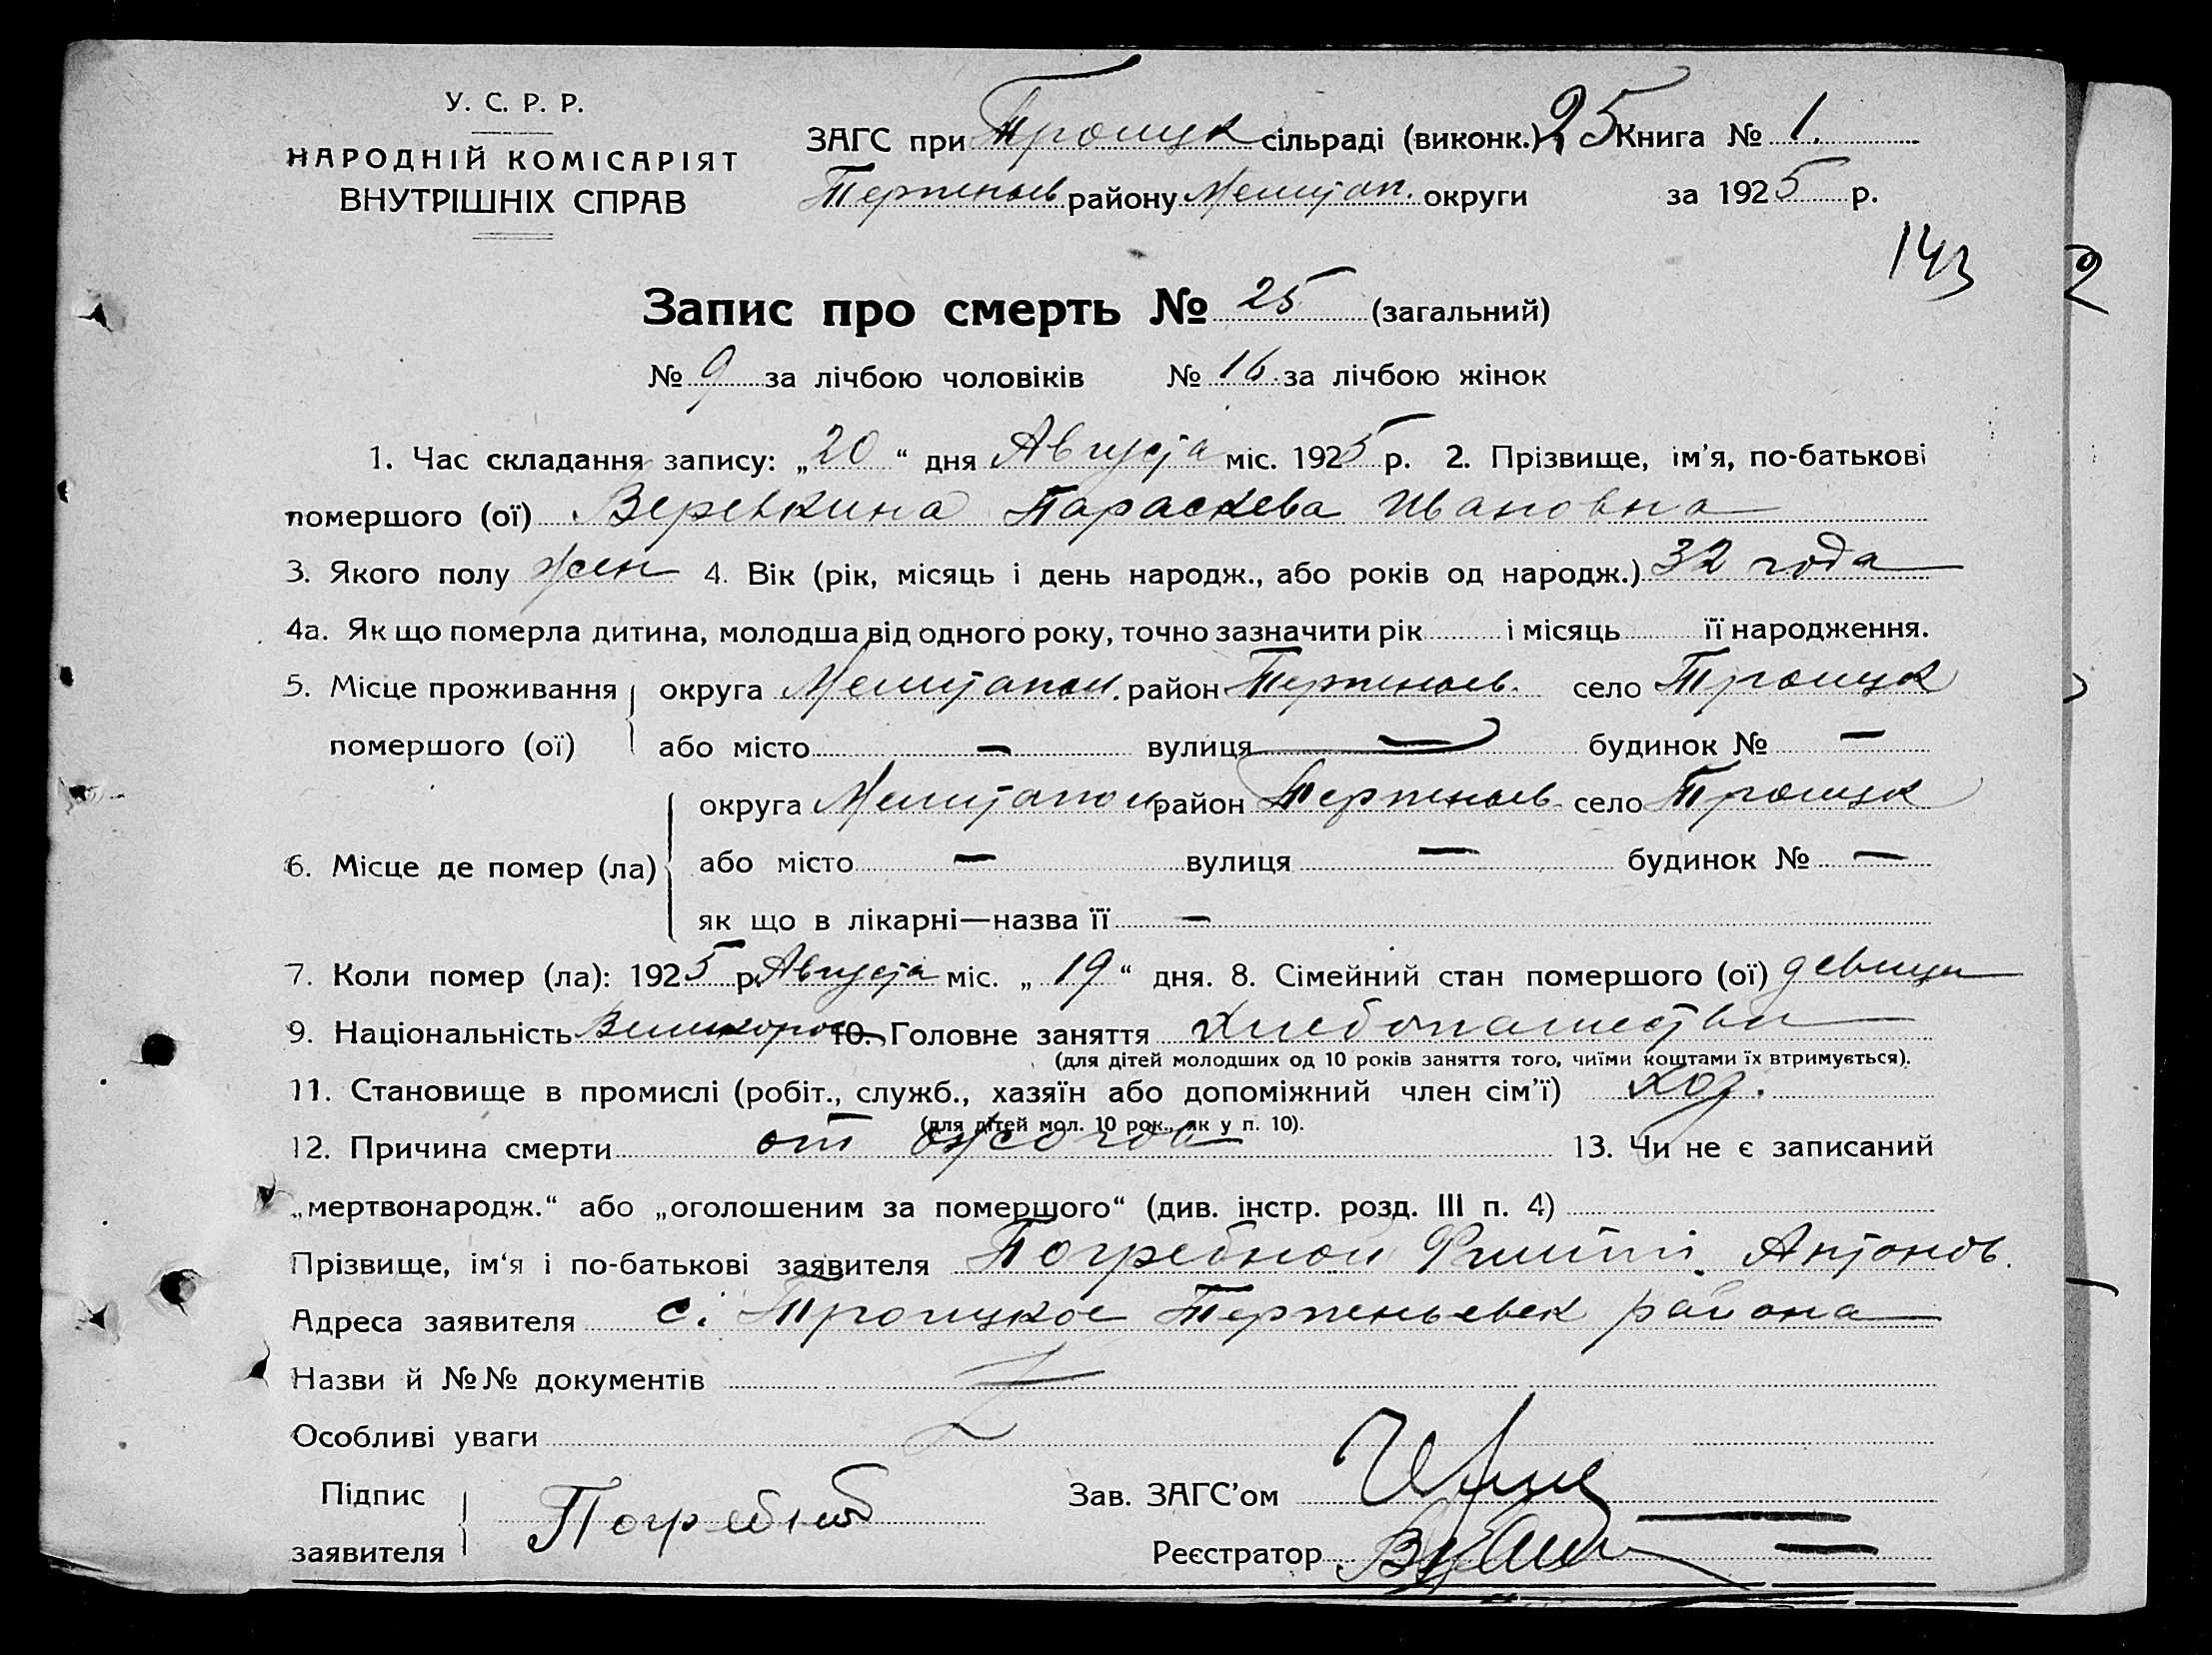 У. С. Р. Р.
НАРОДНІЙ КОМІСАРІЯТ
ВНУТРІШНІХ СПРАВ
ЗАГС при Троицк сільраді (виконк.) 25 Книга № 1.
Терпеньев району Мелитоп. округи за 1925 р.
143
2
Запис про смерть № 25 (загальний)
№ 9 за лічбою чоловіків № 16. за лічбою жінок
1. Час складання запису: „20“ дня Августа міс. 1925 р. 2. Прізвище, ім'я, по-батькові
помершого (ої) Веревкина Параскева Ивановна
3. Якого полу жен 4. Вік (рік, місяць і день народж., або років од народж.) 32 года
4а. Як що померла дитина, молодша від одного року, точно зазначити рік і місяць її народження.
5. Місце проживання округа Мелитопол. район Терпеньев. село Троицк
помершого (ої) або місто — вулиця — будинок № —
округа Мелитопол район Терпеньев село Троицк
6. Місце де помер (ла) або місто — вулиця — будинок № —
як що в лікарні—назва її —
7. Коли помер (ла): 1925 р. Августа міс. „19“ дня. 8. Сімейний стан помершого (ої) девица
9. Національність Великорос 10. Головне заняття Хлебопашество
(для дітей молодших од 10 років заняття того, чиїми коштами їх втримується).
11. Становище в промислі (робіт., служб., хазяїн або допоміжний член сім'ї) хоз.
(для дітей мол. 10 рок., як у п. 10).
12. Причина смерти от ожогов 13. Чи не є записаний
„мертвонародж.“ або „оголошеним за помершого“ (див. інстр. розд. III п. 4)
Прізвище, ім'я і по-батькові заявителя Погребной Антонов.
Адреса заявителя с. Троицкое Терпеньевск района
Назви й №№ документів
Особливі уваги
Підпис
заявителя Погребной
Зав. ЗАГС'ом
Реєстратор